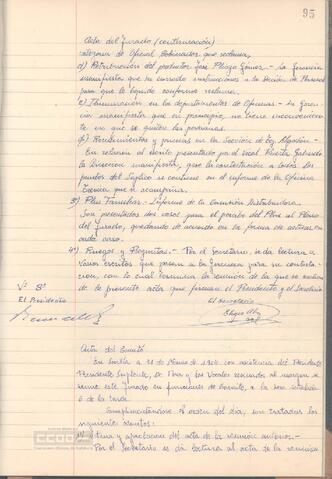 95
Acta del Jurado (continuación)
categoria de Oficial Bobinador que reclama.
d) Retribución del productor José Plaza Gómez - La Gerencia
manifiesta que ha cursado instrucciones a la Sección de Personal
para que le liquide conforme reclama.
e) Iluminación en los departamentos de Oficinas - La Geren-
cia manifiesta que en principio, no tiene inconveniente
en que se quiten las persianas.
f) Rendimientos y primas en la Sección de Algodón.-
En relación al escrito presentado por el vocal
la Dirección manifiesta, que la contestación a todos los
puntos del mismo se contiene en el informe de la Oficina
Técnica que se acompaña.
3) Plus Familiar.- Informe de la Comisión Distribuidora
Son presentados dos casos para el percibo del Plus al Pleno
del Jurado, quedando de acuerdo en la forma de actuar en
cada caso.
4) Ruegos y Preguntas.- Por el Secretario, se da lectura a
varios escritos que pasan a la Gerencia para su contesta-
ción, con lo cual termina la reunión de la que se extien-
de la presente acta que firman el Presidente y el Secretario
Vº Bº
El Presidente
El Secretario
Acta del Comité
En Sevilla a de de 1964 con asistencia del Presidente,
Presidente Suplente, Sr. y los Vocales reseñados al margen se
reune este Jurado en funciones de Comité, a la hora señalada
6 de la tarde.
Cumplimentándose el orden del día, son tratados los
siguientes asuntos:
1) Lectura y aprobación del acta de la reunión anterior.-
Por el Secretario se da lectura al acta de la reunión
CCOO